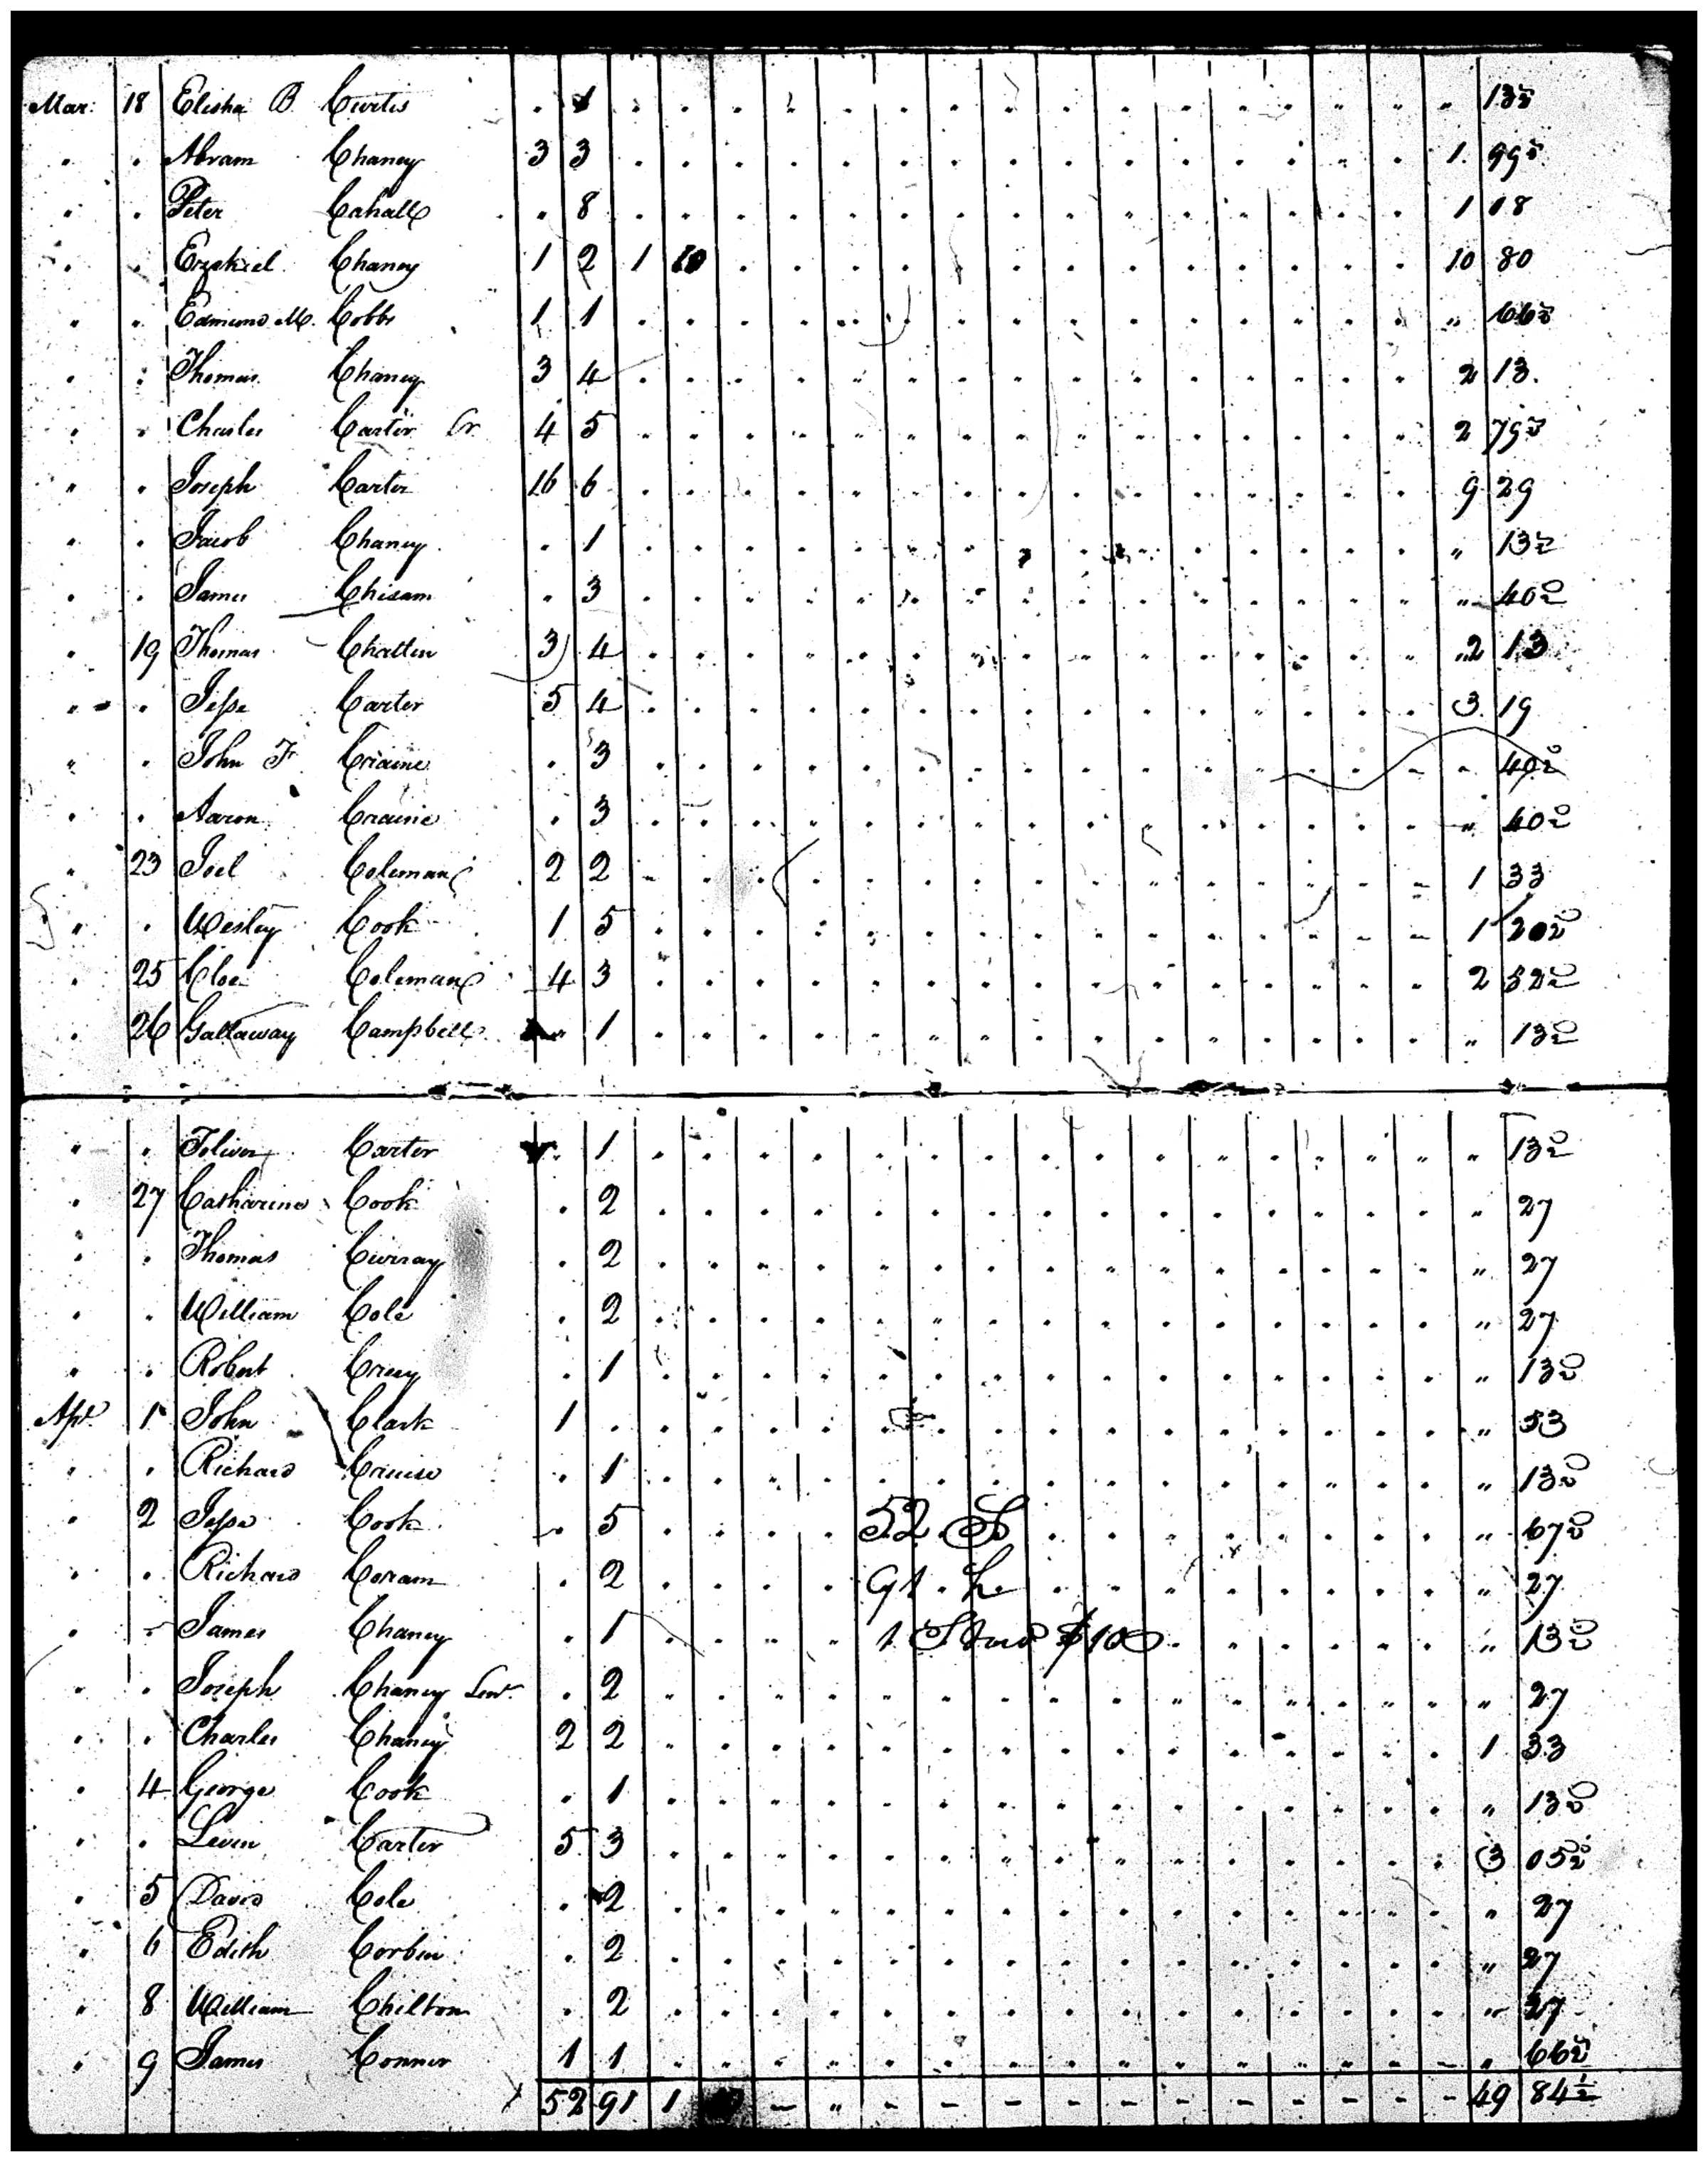 Mar: 18 Elisha B. Curtis . 1 " 13½
" " Abram Chaney 3 3 1 99½
" " Peter Cahall . 8 1 08
" " Ezekiel Chaney 1 2 1 10 10 80
" " Edmund M. Cobbs 1 1 " 66½
" " Thomas Chaney 3 4 2 13
" " Charles Carter Sr. 4 5 2 79½
" " Joseph Carter 16 6 9 29
" " Jacob Chaney . 1 " 13½
" " James Chisam . 3 " 40½
" 19 Thomas Chattin 3 4 2 13
" " Jesse Carter 5 4 3 19
" " John F Craine . 3 " 40½
" " Aaron Craine . 3 " 40½
" 23 Joel Coleman 2 2 1 33
" " Wesley Cook 1 5 1 20½
" 25 Cloe Coleman 4 3 2 52½
" 26 Gallaway Campbell . 1 " 13½
" " Toliver Carter . 1 " 13½
" 27 Catharine Cook . 2 " 27
" " Thomas Curray . 2 " 27
" " William Cole . 2 " 27
" " Robert Creey . 1 " 13½
Apl. 1 John Clark 1 . " 53
" " Richard Cruise . 1 " 13½
" 2 Jesse Cook . 5 52 S " 67½
" " Richard Coram . 2 91 h " 27
" " James Chaney . 1 1 Stud $10 " 13½
" " Joseph Chaney Senr. . 2 " 27
" " Charles Chaney 2 2 1 33
" 4 George Cook . 1 " 13½
" " Levin Carter 5 3 3 05½
" 5 David Cole . 2 " 27
" 6 Edith Corbin . 2 " 27
" 8 William Chilton . 2 " 27
" 9 James Conner 1 1 " 66½
52 91 1 49 84½